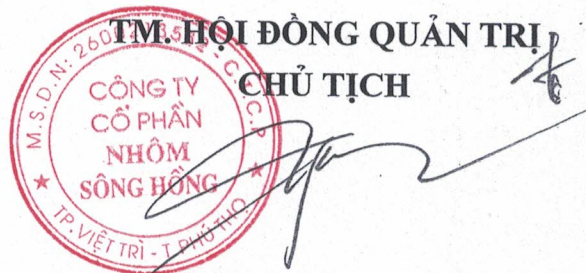 TM. HỘI ĐỒNG QUẢN TRỊ
CHỦ TỊCH
M.S.D.N:
C.T.C.P
CÔNG TY
CỔ PHẦN
NHÔM
SÔNG HỒNG
TP. VIỆT TRÌ - T. PHÚ THỌ